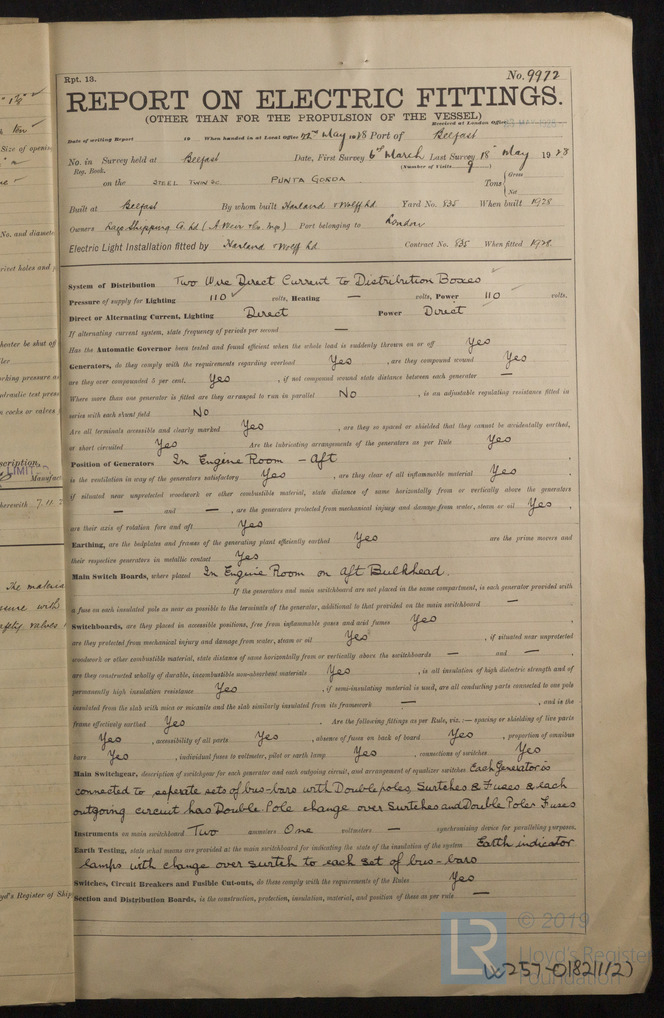 Rpt. 13.
No. 9972
REPORT ON ELECTRIC FITTINGS.
(OTHER THAN FOR THE PROPULSION OF THE VESSEL)
Received at London Office 23 MAY 1928
Date of writing Report 19 When handed in at Local Office 22nd May 1928 Port of Belfast
No. in Survey held at Belfast Date, First Survey 6th March Last Survey 18th May 1928
Reg. Book. (Number of Visits 9)
on the STEEL TWIN SC PUNTA GORDA Tons { Gross
Net
Built at Belfast By whom built Harland & Wolff Ld. Yard No. 835 When built 1928
Owners Shipping Co. Ld (A. Weir & Co. Mgrs) Port belonging to London
Electric Light Installation fitted by Harland & Wolff Ld. Contract No. 835 When fitted 1928.
System of Distribution Two Wire Direct Current to Distribution Boxes
Pressure of supply for Lighting 110 volts, Heating — volts, Power 110 volts.
Direct or Alternating Current, Lighting Direct Power Direct
If alternating current system, state frequency of periods per second —
Has the Automatic Governor been tested and found efficient when the whole load is suddenly thrown on or off Yes
Generators, do they comply with the requirements regarding overload Yes , are they compound wound Yes
are they over compounded 5 per cent. Yes , if not compound wound state distance between each generator —
Where more than one generator is fitted are they arranged to run in parallel No , is an adjustable regulating resistance fitted in
series with each shunt field No
Are all terminals accessible and clearly marked Yes , are they so spaced or shielded that they cannot be accidentally earthed,
or short circuited Yes Are the lubricating arrangements of the generators as per Rule Yes
Position of Generators In Engine Room - Aft
is the ventilation in way of the generators satisfactory Yes , are they clear of all inflammable material Yes ,
if situated near unprotected woodwork or other combustible material, state distance of same horizontally from or vertically above the generators
— and — , are the generators protected from mechanical injury and damage from water, steam or oil Yes ,
are their axis of rotation fore and aft Yes
Earthing, are the bedplates and frames of the generating plant efficiently earthed Yes are the prime movers and
their respective generators in metallic contact Yes
Main Switch Boards, where placed In Engine Room on Aft Bulkhead.
If the generators and main switchboard are not placed in the same compartment, is each generator provided with
a fuse on each insulated pole as near as possible to the terminals of the generator, additional to that provided on the main switchboard —
Switchboards, are they placed in accessible positions, free from inflammable gases and acid fumes Yes ,
are they protected from mechanical injury and damage from water, steam or oil Yes , if situated near unprotected
woodwork or other combustible material, state distance of same horizontally from or vertically above the switchboards — and — ,
are they constructed wholly of durable, incombustible non-absorbent materials Yes , is all insulation of high dielectric strength and of
permanently high insulation resistance Yes , if semi-insulating material is used, are all conducting parts connected to one pole
insulated from the slab with mica or micanite and the slab similarly insulated from its framework — , and is the
frame effectively earthed Yes . Are the following fittings as per Rule, viz.:— spacing or shielding of live parts
Yes , accessibility of all parts Yes , absence of fuses on back of board Yes , proportion of omnibus
bars Yes , individual fuses to voltmeter, pilot or earth lamp Yes , connections of switches Yes
Main Switchgear, description of switchgear for each generator and each outgoing circuit, and arrangement of equalizer switches Each Generator is
connected to seperate sets of bus-bars with Double poles Switches & Fuses & each
outgoing circuit has Double Pole change over Switches and Double Poles Fuses
Instruments on main switchboard Two ammeters One voltmeters — synchronizing device for paralleling purposes.
Earth Testing, state what means are provided at the main switchboard for indicating the state of the insulation of the system Earth indicator
lamps with change over switch to each set of bus-bars
Switches, Circuit Breakers and Fusible Cut-outs, do these comply with the requirements of the Rules Yes
Section and Distribution Boards, is the construction, protection, insulation, material, and position of these as per rule —
© 2019
Lloyd's Register
Foundation
LR
W257-0182(1/2)